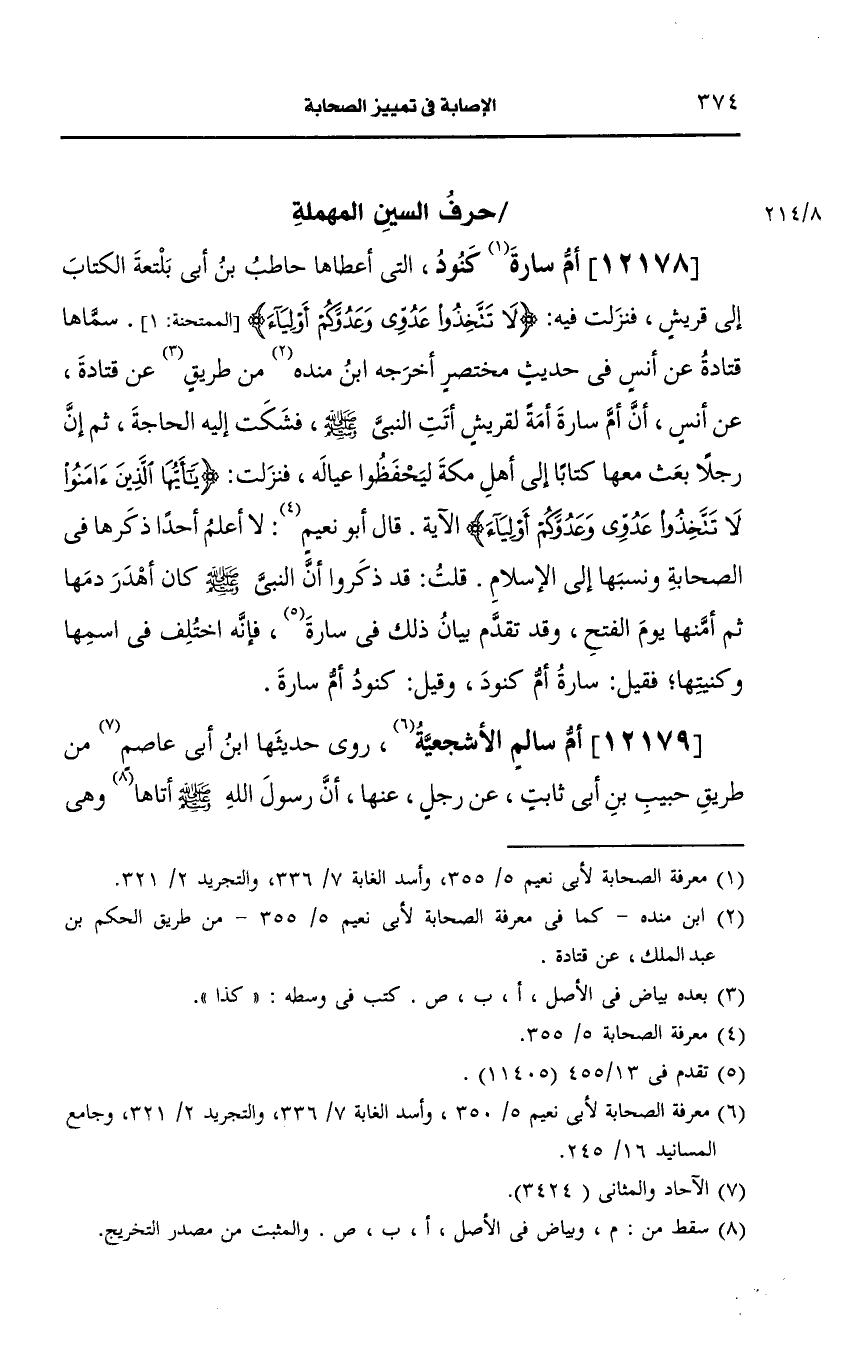 ٣٧٤ الإصابة فى تمييز الصحابة
٢١٤/٨ /حرفُ السينِ المهملةِ
[١٢١٧٨] أمُّ سارةَ(١) كَنُودُ ، التى أعطاها حاطبُ بنُ أبى بَلْتعةَ الكتابَ
إلى قريشٍ ، فنزَلت فيه: ﴿لَا تَتَّخِذُوا۟ عَدُوِّى وَعَدُوَّكُمْ أَوْلِيَآءَ﴾ [الممتحنة: ١] . سمَّاها
قتادةُ عن أنسٍ فى حديثٍ مختصرٍ أخرَجه ابنُ منده(٢) من طريقٍ(٣) عن قتادةَ ،
عن أنسٍ ، أنَّ أمَّ سارةَ أمَةً لقريشٍ أتَتِ النبىَّ ﷺ ، فشَكَت إليه الحاجةَ ، ثم إنَّ
رجلًا بعَث معها كتابًا إلى أهلِ مكةَ ليَحْفَظُوا عيالَه ، فنزَلت: ﴿يَـٰٓأَيُّهَا ٱلَّذِينَ ءَامَنُوا۟
لَا تَتَّخِذُوا۟ عَدُوِّى وَعَدُوَّكُمْ أَوْلِيَآءَ﴾ الآية . قال أبو نعيمٍ(٤): لا أعلمُ أحدًا ذكَرها فى
الصحابةِ ونسبَها إلى الإسلامِ . قلتُ: قد ذكَروا أنَّ النبىَّ ﷺ كان أهْدَرَ دمَها
ثم أمَّنها يومَ الفتحِ ، وقد تقدَّم بيانُ ذلك فى سارةَ(٥) ، فإنَّه اختُلِف فى اسمِها
وكنيتِها؛ فقيل: سارةُ أمُّ كنودَ ، وقيل: كنودُ أمُّ سارةَ .
[١٢١٧٩] أمُّ سالمٍ الأشجعيَّةُ(٦) ، روى حديثَها ابنُ أبى عاصمٍ(٧) من
طريقِ حبيبِ بنِ أبى ثابتٍ ، عن رجلٍ ، عنها ، أنَّ رسولَ اللهِ ﷺ أتاها(٨) وهى
(١) معرفة الصحابة لأبى نعيم ٥/ ٣٥٥، وأسد الغابة ٧/ ٣٣٦، والتجريد ٢/ ٣٢١.
(٢) ابن منده - كما فى معرفة الصحابة لأبى نعيم ٥/ ٣٥٥ - من طريق الحكم بن
عبد الملك ، عن قتادة .
(٣) بعده بياض فى الأصل ، أ ، ب ، ص . كتب فى وسطه : « كذا ».
(٤) معرفة الصحابة ٥/ ٣٥٥.
(٥) تقدم فى ٤٥٥/١٣ (١١٤٠٥) .
(٦) معرفة الصحابة لأبى نعيم ٥/ ٣٥٠ ، وأسد الغابة ٧/ ٣٣٦، والتجريد ٢/ ٣٢١، وجامع
المسانيد ١٦/ ٢٤٥.
(٧) الآحاد والمثانى ( ٣٤٢٤).
(٨) سقط من : م ، وبياض فى الأصل ، أ ، ب ، ص . والمثبت من مصدر التخريج.